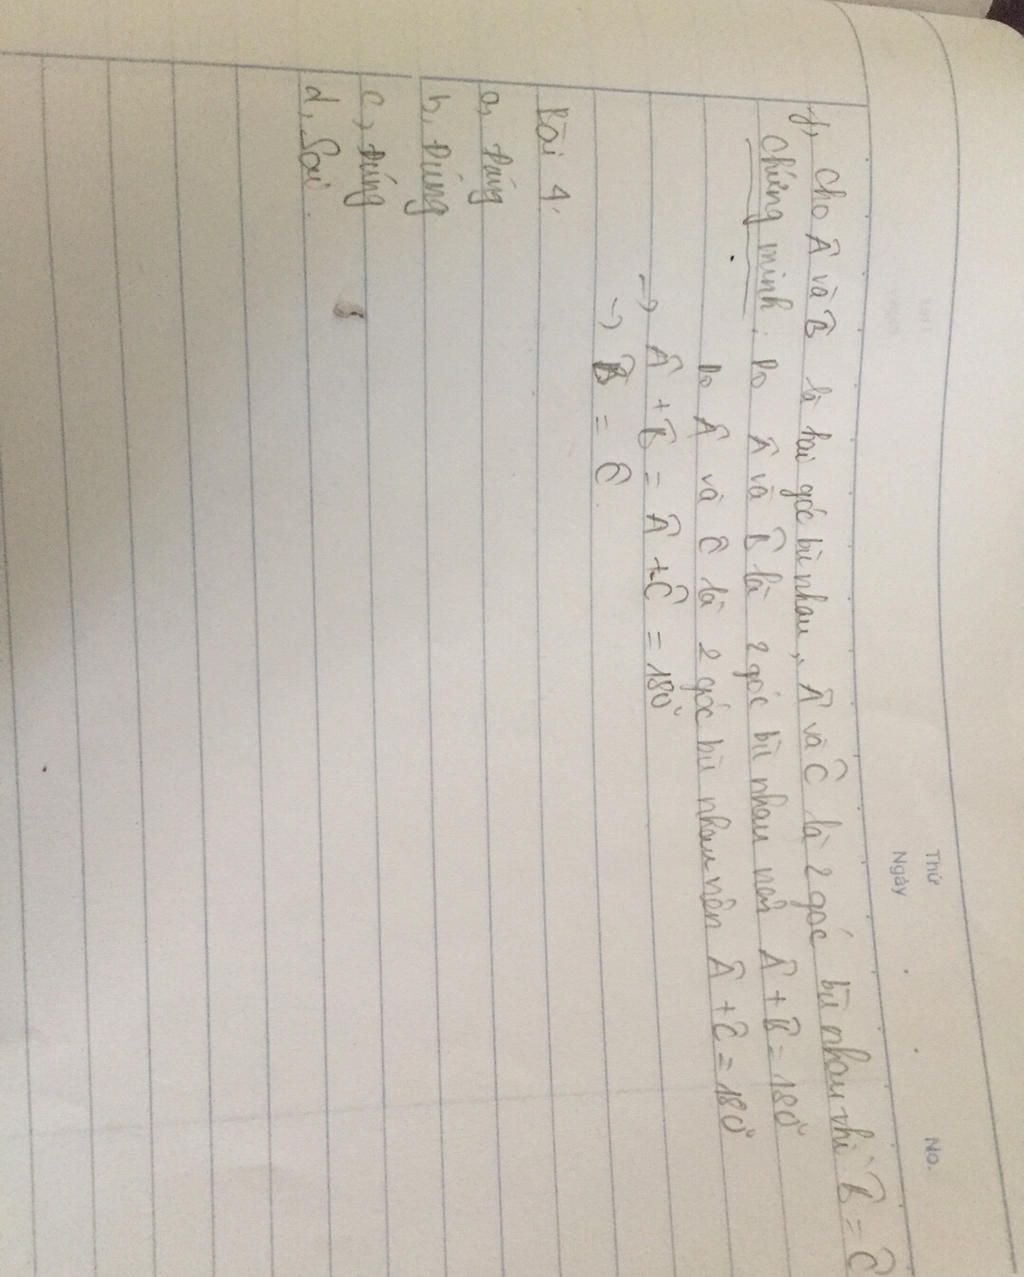 Thứ
Ngày
No.
y, Cho Â và B̂ là hai góc bù nhau, Â và Ĉ là 2 góc bù nhau thì B̂ = Ĉ
Chứng minh: Do Â và B̂ là 2 góc bù nhau nên Â + B̂ = 180°
Do Â và Ĉ là 2 góc bù nhau nên Â + Ĉ = 180°
→ Â + B̂ = Â + Ĉ = 180°
→ B̂ = Ĉ
Bài 4.
a, Đúng
b, Đúng
c, Đúng
d, Sai.